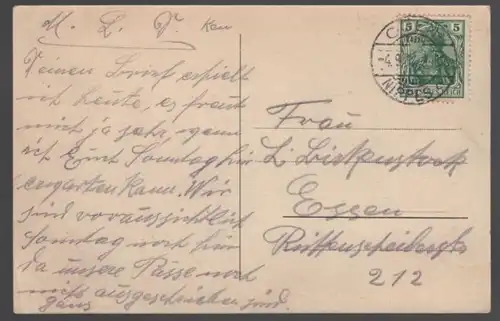 M. L. D.
Deinen Brief erhielt
ich heute, es freut
mich ja sehr, wenn
ich Euch Sonntag hier
erwarten kann. Wir
sind voraussichtlich
Sonntag noch hier
da unsere Pässe noch
nicht ausgeschrieben sind.
ganz
5
5
NIPPES
Frau
L.
Essen
212